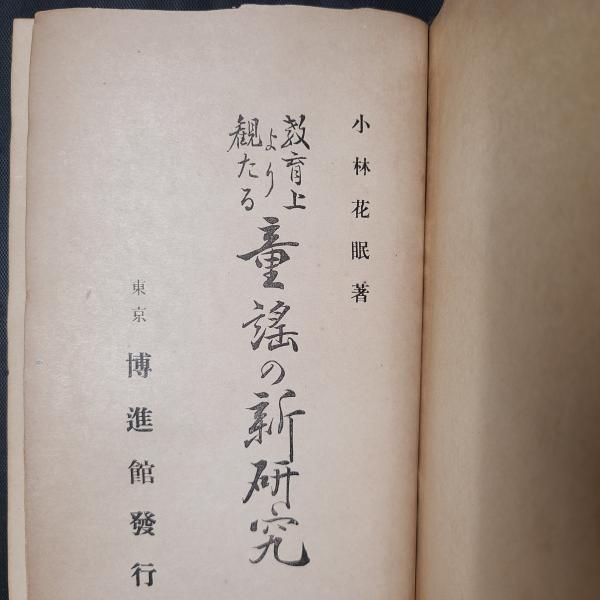 小林花眠著
教育上より
観たる
童謡の新研究
東京
博進館發行